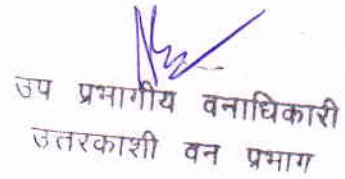 उप प्रभागीय वनाधिकारी
उत्तरकाशी वन प्रभाग